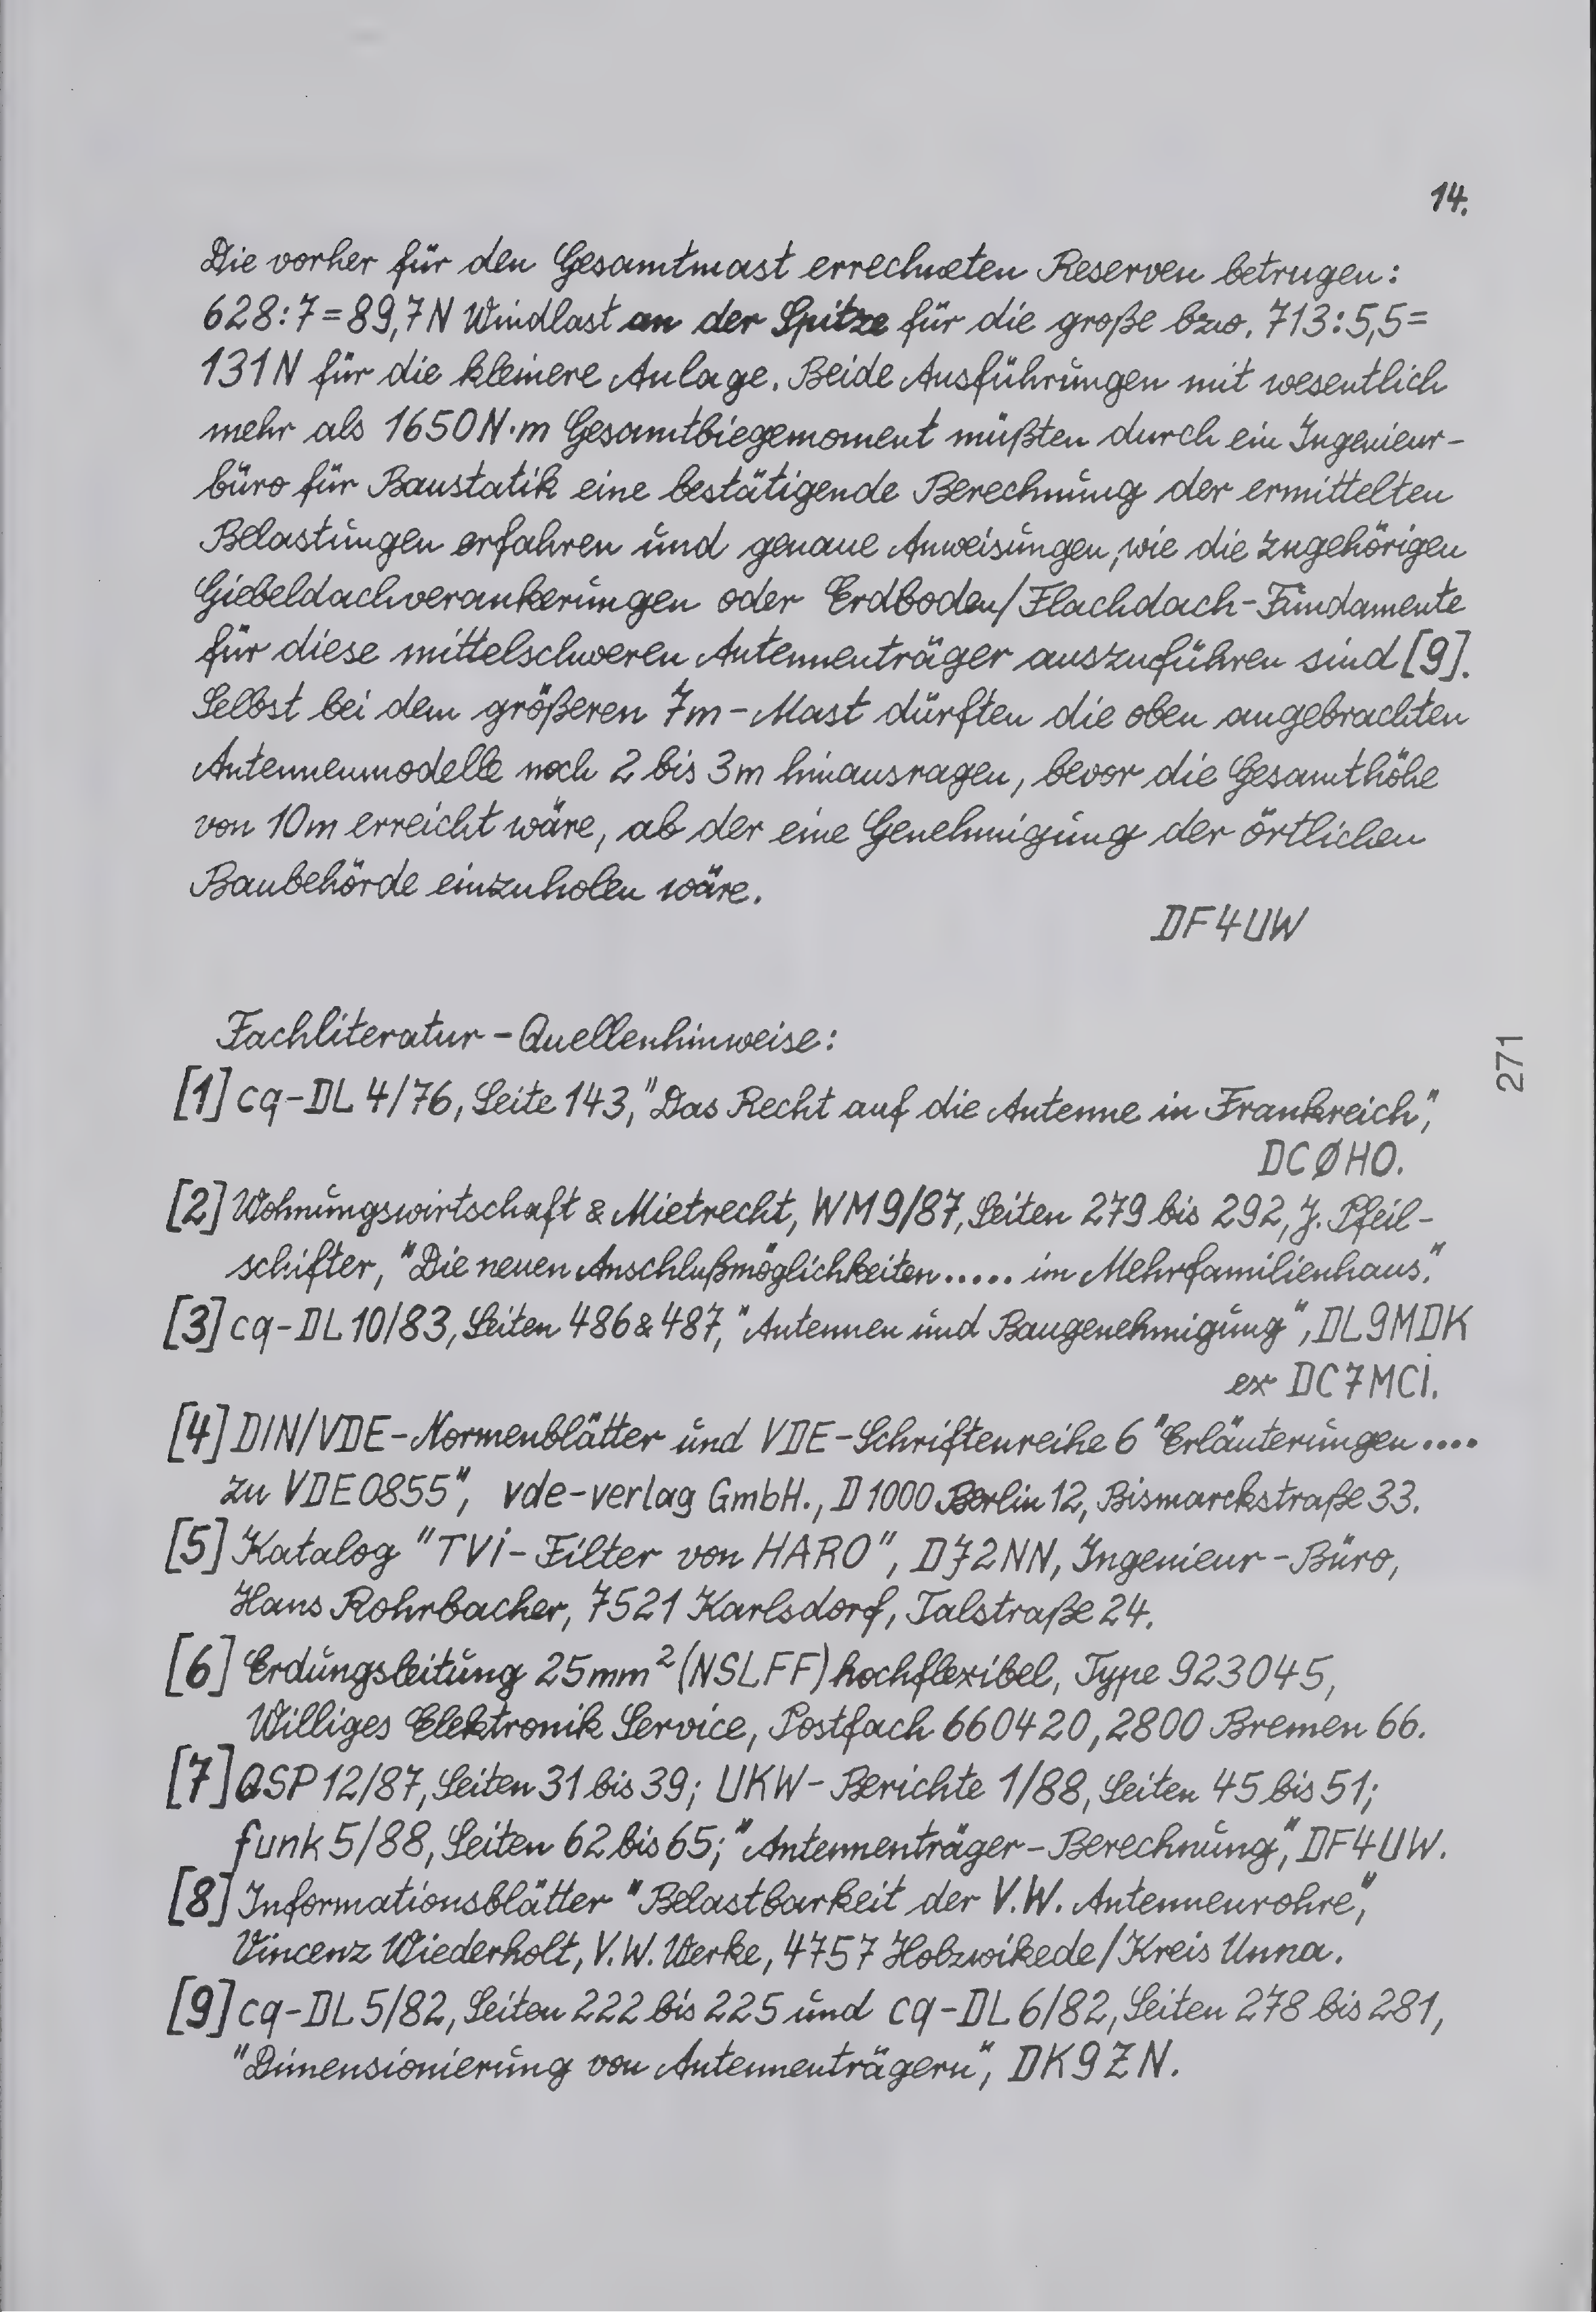 14.
Die vorher für den Gesamtmast errechneten Reserven betrugen:
628:7=89,7N Windlast an der Spitze für die große bzw. 713:5,5=
131N für die kleinere Anlage. Beide Ausführungen mit wesentlich
mehr als 1650N·m Gesamtbiegemoment müßten durch ein Ingenieur-
büro für Baustatik eine bestätigende Berechnung der ermittelten
Belastungen erfahren und genaue Anweisungen, wie die zugehörigen
Giebeldachverankerungen oder Erdboden/Flachdach-Fundamente
für diese mittelschweren Antennenträger auszuführen sind [9].
Selbst bei dem größeren 7m-Mast dürften die oben angebrachten
Antennenmodelle noch 2 bis 3m hinausragen, bevor die Gesamthöhe
von 10m erreicht wäre, ab der eine Genehmigung der örtlichen
Baubehörde einzuholen wäre.
DF4UW
Fachliteratur-Quellenhinweise:
[1] cq-DL 4/76, Seite 143, "Das Recht auf die Antenne in Frankreich",
DCØHO.
[2] Wohnungswirtschaft & Mietrecht, WM 9/87, Seiten 279 bis 292, J. Pfeil-
schifter, "Die neuen Anschlußmöglichkeiten..... im Mehrfamilienhaus."
[3] cq-DL 10/83, Seiten 486 & 487, "Antennen und Baugenehmigung", DL9MDK
ex DC7MCi.
[4] DIN/VDE-Normenblätter und VDE-Schriftenreihe 6 "Erläuterungen....
zu VDE0855", vde-verlag GmbH., D 1000 Berlin 12, Bismarckstraße 33.
[5] Katalog "TVi-Filter von HARO", DJ2NN, Ingenieur-Büro,
Hans Rohrbacher, 7521 Karlsdorf, Talstraße 24.
[6] Erdungsleitung 25mm² (NSLFF) hochflexibel, Type 923045,
Williges Elektronik Service, Postfach 660420, 2800 Bremen 66.
[7] QSP 12/87, Seiten 31 bis 39; UKW-Berichte 1/88, Seiten 45 bis 51;
funk 5/88, Seiten 62 bis 65; "Antennenträger-Berechnung", DF4UW.
[8] Informationsblätter "Belastbarkeit der V.W. Antennenrohre",
Vincenz Wiederholt, V.W. Werke, 4757 Holzwikede/Kreis Unna.
[9] cq-DL 5/82, Seiten 222 bis 225 und cq-DL 6/82, Seiten 278 bis 281,
"Dimensionierung von Antennenträgern", DK9ZN.
271